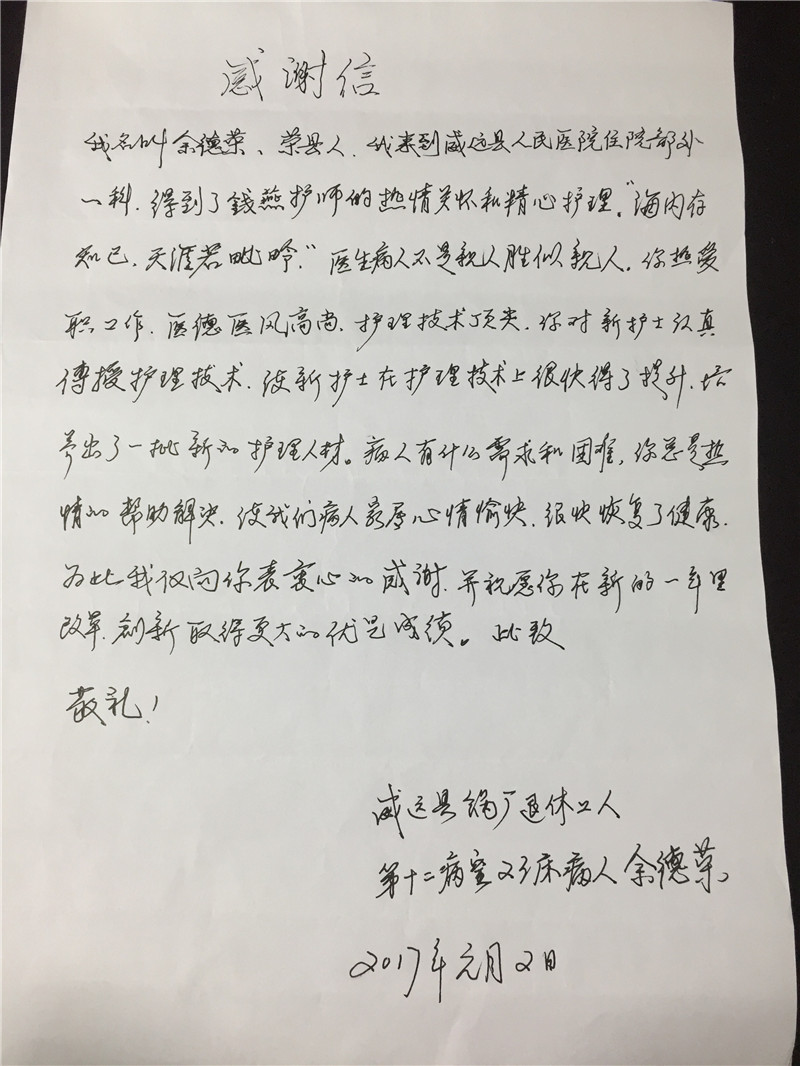 感谢信
我名叫余德荣、荣县人.我来到威远县人民医院住院部外
一科.得到了錢燕护师的热情关怀和精心护理。“海内存
知己.天涯若毗邻.”医生病人不是親人胜似親人.你热愛
职工作.医德医风高尚.护理技术顶尖.你对新护士认真
傳授护理技术.使新护士在护理技术上很快得了提升.培
养出了一批新的护理人材。病人有什么需求和困难,你总是热
情的帮助解决.使我们病人心情愉快.很快恢复了健康.
为此我仅向你表衷心的感谢.并祝愿你在新的一年里
改革.创新取得更大的优异成绩。此致
敬礼!
威远县钢厂退休工人
第十二病室床病人余德荣
2017年元月2日